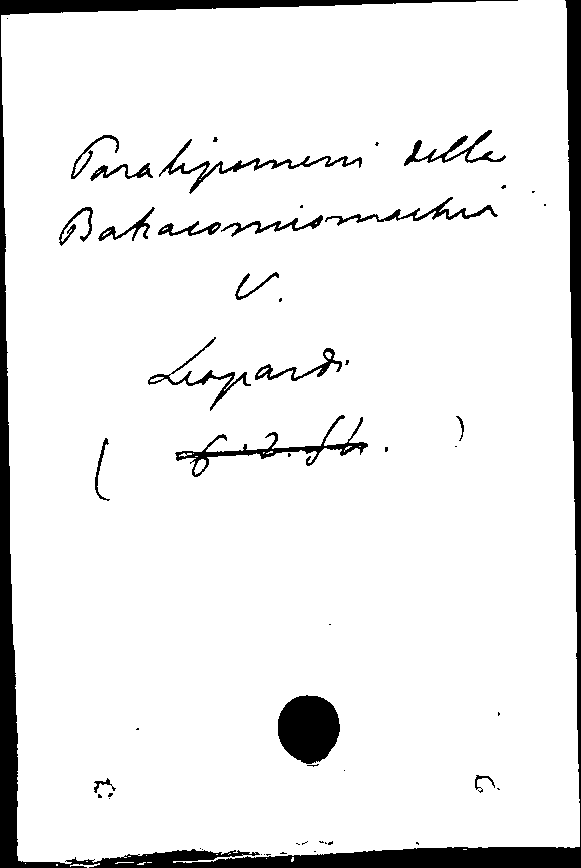 Paralipomeni della
Batracomiomachia
V.
Leopardi
( 6.2.54. )